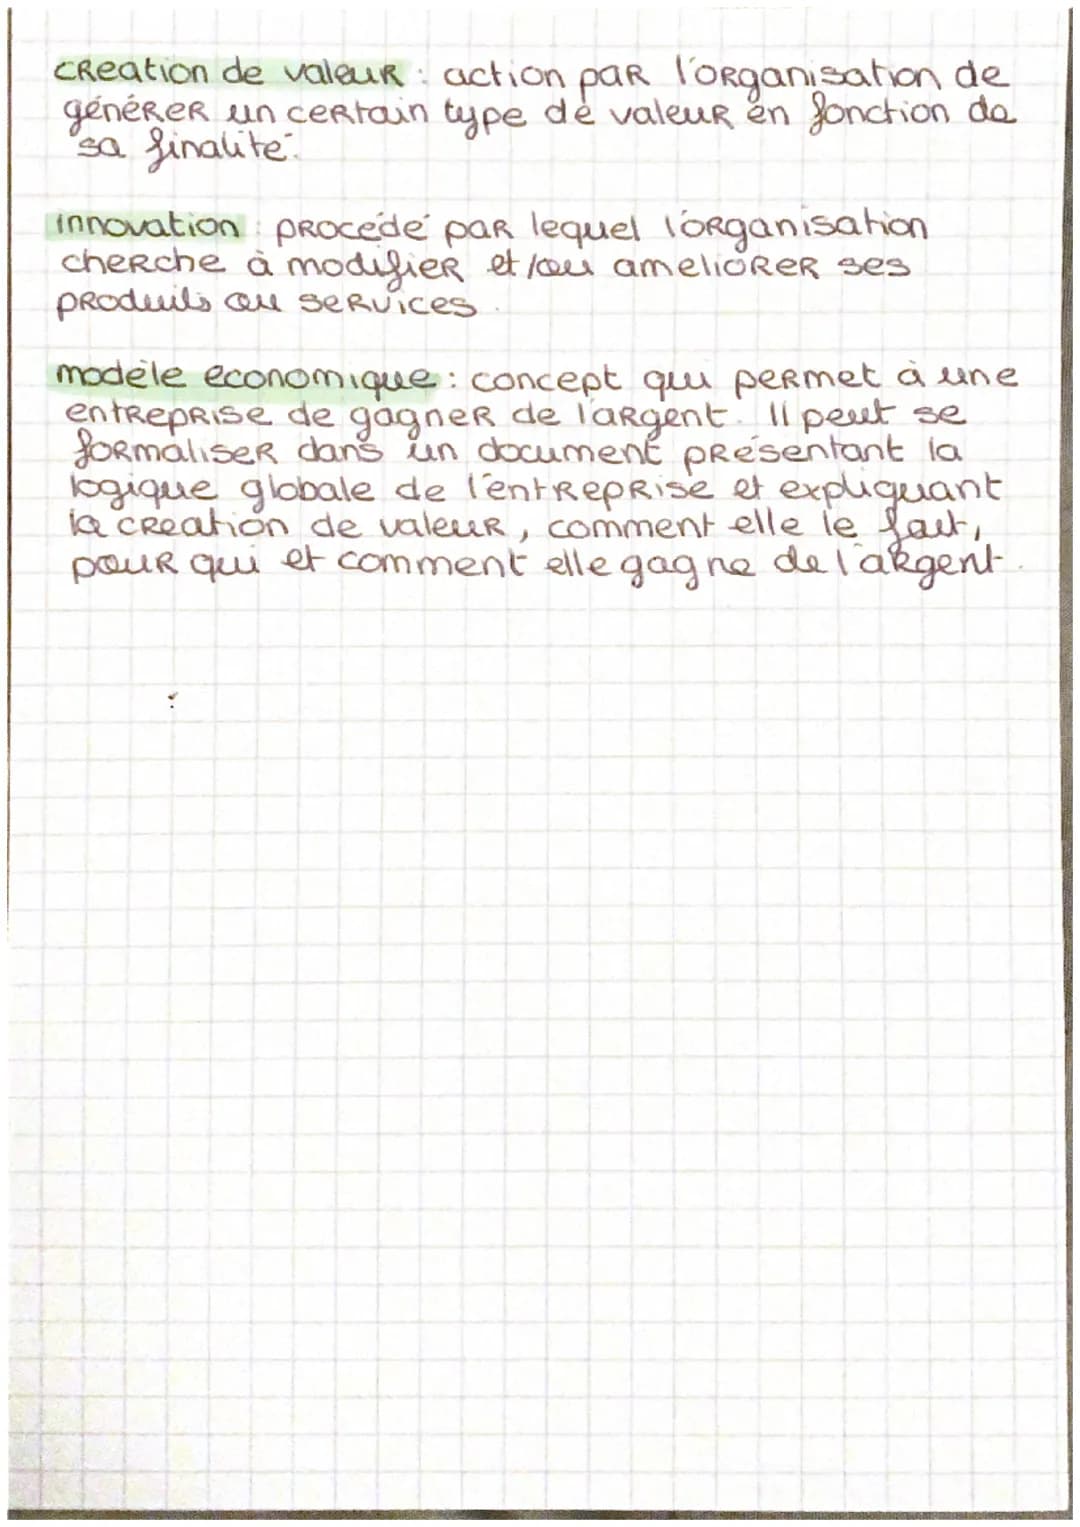 creation de valeur : action par l'organisation de
générer un certain type de valeur en fonction de
sa finalité.
innovation : procédé par lequel l'organisation
cherche à modifier et/ou ameliorer ses
produits ou services.
modèle economique : concept qui permet à une
entreprise de gagner de l'argent. Il peut se
formaliser dans un document présentant la
logique globale de l'entreprise et expliquant
la creation de valeur, comment elle le fait,
pour qui et comment elle gagne de l'argent.